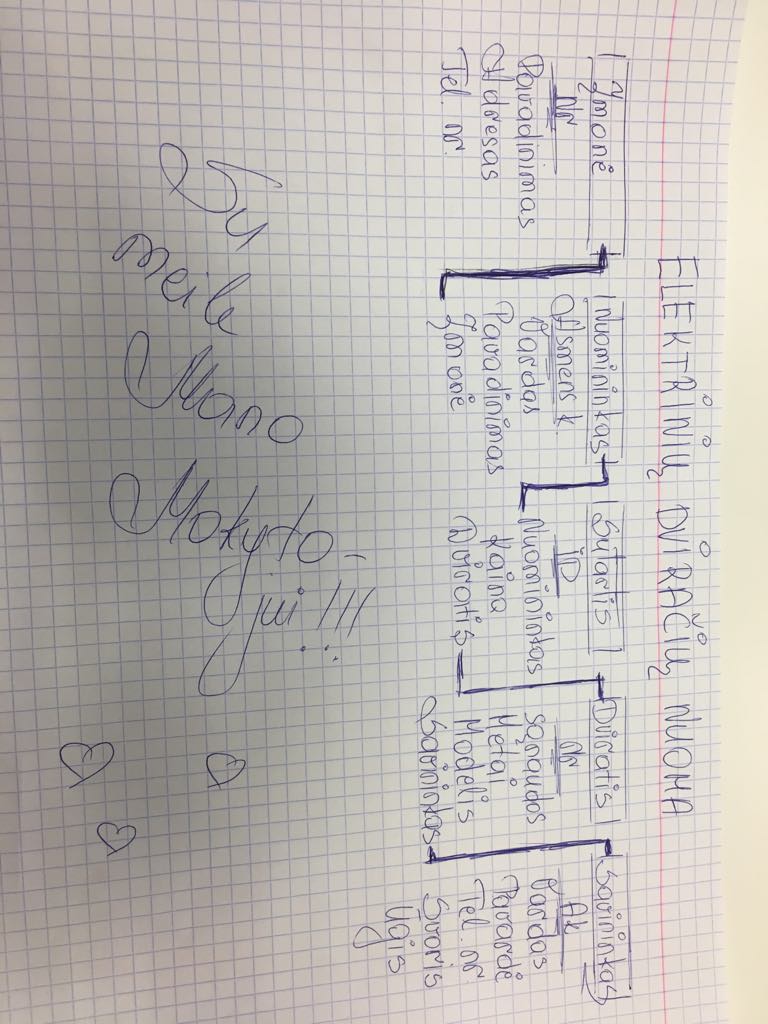 ELEKTRINIŲ DVIRAČIŲ NUOMA
Įmonė
Nr
Pavadinimas
Adresas
Tel. nr.
Nuomininkas
Asmens k.
Vardas
Pavadinimas
Įmonė
Sutartis
ID
Nuomininkas
Kaina
Dviratis
Dviratis
Nr
Sąnaudos
Metai
Modelis
Savininkas
Savininkas
AK
Vardas
Pavardė
Tel. nr.
Svoris
Ūgis
Su
meile
Mano
Mokyto-
jui!!!